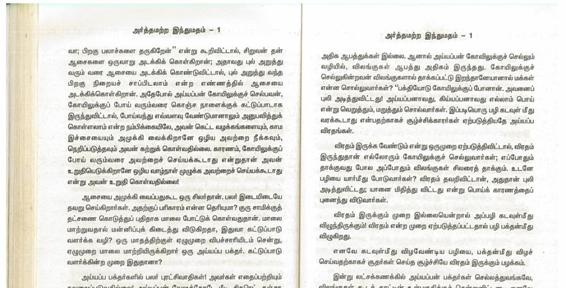 அர்த்தமற்ற இந்துமதம் – 1
வா; பிறகு பலாச்சுளை தருகிறேன்” என்று கூறிவிட்டால், சிறுவன் தன்
ஆசைகளை ஒருவாறு அடக்கிக் கொள்கிறான்; அதாவது புல் அறுத்து
வரும் வரை ஆசையை அடக்கிக் கொண்டுவிட்டால், புல் அறுத்து வந்த
பிறகு நிறையச் சாப்பிடலாம் என்ற எண்ணத்தில் ஆசையை
அடக்கிக்கொள்கிறான். அதேபோல் அய்யப்பன் கோவிலுக்குச் செல்பவன்,
கோயிலுக்குப் போய் வரும்வரை கொஞ்ச நாளைக்குக் கட்டுப்பாடாக
இருந்துவிட்டால், போய்வந்து எவ்வளவு வேண்டுமானாலும் அனுபவித்துக்
கொள்ளலாம் என்ற நம்பிக்கையிலே, அவன் கெட்ட வழக்கங்களையும், காம
இச்சையையும் அடக்கி வைக்கிறானே ஒழிய அவற்றை நீக்கவும்,
நெறிப்படுத்தவும் அவன் கற்றுக் கொள்வதில்லை. காரணம், கோயிலுக்குப்
போய் வரும்வரை அவற்றைச் செய்யக்கூடாது என்றுதான் அவன்
உறுதியெடுக்கிறானே ஒழிய வாழ்நாள் முழுக்க அவற்றைச் செய்யக்கூடாது
என்று அவன் உறுதி கொள்வதில்லை!
ஆசையை அடக்கி வைப்பதுகூட ஒரு சிலர்தான். பலர் இடையிலேயே
தவறு செய்கிறார்கள். அதற்குப் பரிகாரம் என்ன தெரியுமா? குரு சாமிக்குத்
தட்சணை கொடுத்துப் புதிதாக மாலை போட்டுக் கொள்வதுதான். மாலை
மாற்றுவதால் மன்னிப்புக் கிடைத்து விடுகிறதா, இதுவா கட்டுப்பாடு
வளர்க்க வழி? ஒரு மாதத்திற்குள் ஏழுமுறை விபச்சாரியிடம் சென்று,
ஏழுமுறை மாலை மாற்றியிருக்கிறார் ஒரு அய்யப்ப பக்தர். கட்டுப்பாடு
வளர்க்கின்ற முறை இதுதானா?
அய்யப்ப பக்தர்களில் பலர் புரட்சிவாதிகள்! அவர்கள் எதைப்பற்றியும்
அர்த்தமற்ற இந்துமதம் – 1
அதிக ஆபத்துக்கள் இல்லை. ஆனால் அய்யப்பன் கோவிலுக்குச் செல்லும்
வழியில், விலங்குகள் ஆபத்து அதிகம் இருந்தது. கோயிலுக்குச்
செல்லுகின்றவன் விலங்குகளால் தாக்கப்பட்டு இறந்தானேயானால் மக்கள்
என்ன சொல்வார்கள்? “பக்தியோடு கோயிலுக்குப் போனான். அவனைப்
புலி அடித்துவிட்டது! அய்யப்பனாவது, கிய்யப்பனாவது எல்லாம் பொய்
என்று வெறுத்தும், மறுத்தும் சொல்வார்கள். இப்படியொரு பழி கடவுள் மீது
வரக்கூடாது என்பதற்காகச் சூழ்ச்சிக்காரர்கள் ஏற்படுத்தியதே அய்யப்ப
விரதங்கள்.
விரதம் இருக்க வேண்டும் என்று ஒருமுறை ஏற்படுத்திவிட்டால், விரதம்
இருந்துதான் எல்லோரும் கோயிலுக்குச் செல்லுவார்கள்; எப்போதும்
தாக்குவது போல அப்போதும் விலங்குகள் சிலரைத் தாக்கும். உடனே
பழியை யார்மீது போடுவார்கள்? விரதம் தவறிவிட்டான், அதுதான் புலி
அடித்துவிட்டது; யானை மிதித்து விட்டது என்று பொய்க் காரணத்தைப்
புனைந்து விடுவார்கள்.
விரதம் இருக்கும் முறை இல்லையென்றால் அப்பழி கடவுள்மீது
விழுந்திருக்கும்! விரதம் என்ற முறை ஏற்படுத்தப்பட்டதால் பழி பக்தன்மீது
விழுகிறது.
எனவே கடவுள்மீது விழவேண்டிய பழியை, பக்தன்மீது விழச்
செய்வதற்காகச் சூதர்கள் செய்த சூழ்ச்சியே விரதம் இருக்கும் பழக்கம்.
இன்று லட்சக்கணக்கில் அய்யப்பன் பக்தர்கள் செல்லத்துவங்கவே,